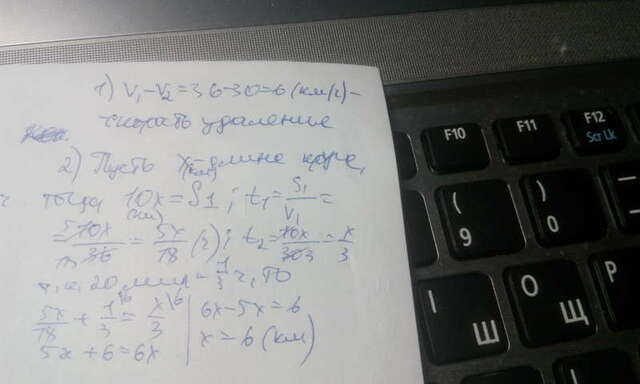 1) V₁-V₂=36-30=6 (км/ч)-
скорость удаление
2) Пусть x(км)-длина круга,
тогда 10x=S1; t₁=S₁/V₁=
(км)
=10x/36=5x/18 (ч); t₂=10x/30=x/3
т.к. 20 мин=1/3 ч, то
5x/18+1/3=x/3
5x+6=6x
6x-5x=6
x=6 (км)
F10
F11
F12
Scr Lk
( 9
) 0
І Ш
O Щ
P